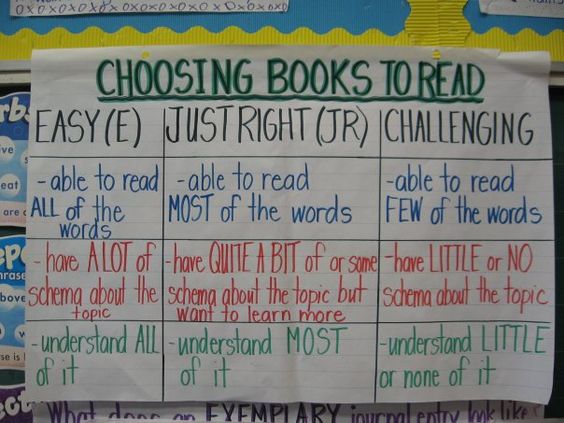 CHOOSING BOOKS TO READ
EASY (E)
-able to read
ALL of the
words
-have A LOT of
schema about the
topic
-understand ALL
of it
JUST RIGHT (JR)
-able to read
MOST of the words
-have QUITE A BIT of or some
schema about the topic but
want to learn more
-understand MOST
of it
CHALLENGING
-able to read
FEW of the words
-have LITTLE or NO
schema about the topic
-understand LITTLE
or none of it
What does an EXEMPLARY journal entry look like?